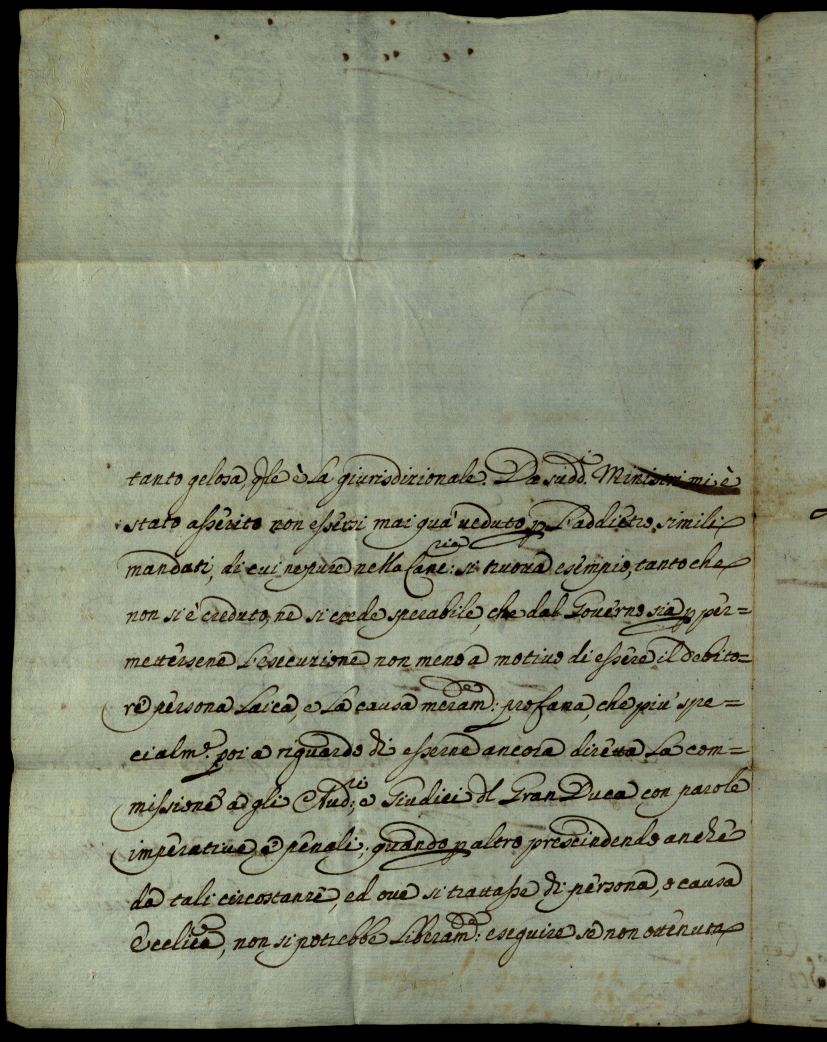 tanto gelosa, qle è la giurisdizionale. Da sudd.i Ministri mi è
stato asserito non essersi mai quà veduto p l'addietro simili
mandati, di cui nepure nella Canc:ria si truova esempio, tanto che
non si è creduto, ne si crede sperabile, che dal Governo sia p per=
mettersene l'esecuzione non meno a motivo di essere il debito=
re persona laica, e la causa meram.te: profana, che più spe=
cialm.e poi a riguardo di esserne ancora diretta la com=
missione agli Aud.ri; e Giudici dl Gran Duca con parole
imperative, e penali; quando p altro prescindendo anche
da tali circostanze, ed ove si trattasse di persona, o causa
Eccli.ca, non si potrebbe liberam.te: eseguire se non ottenuta